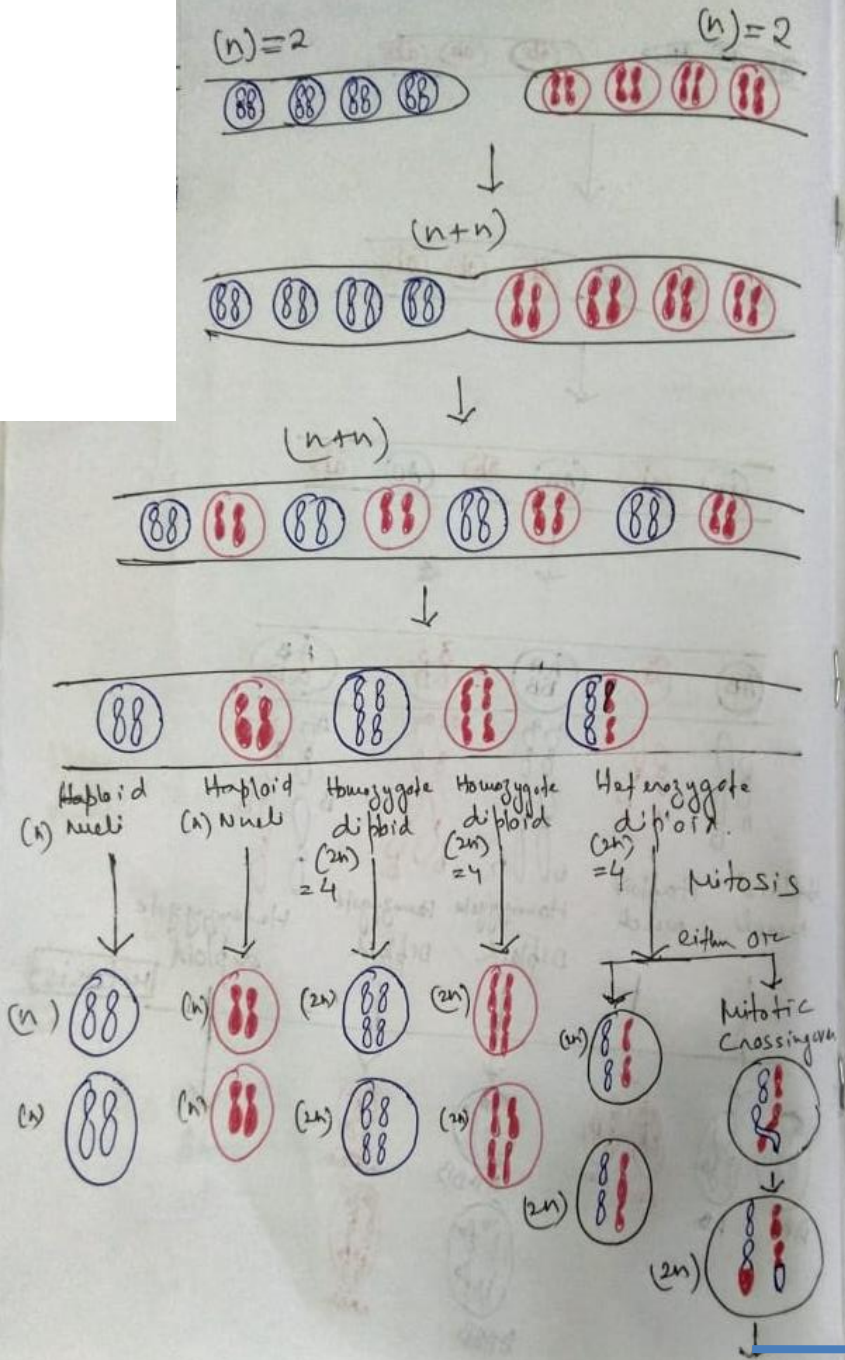 (n)=2
(n)=2
(n+n)
(n+n)
Haploid
(n) nucli
Haploid
(n) Nucli
Homozygote
diploid
(2n)
=4
Homozygote
diploid
(2n)
=4
Heterozygote
diploid.
(2n)
=4
Mitosis
either or
Mitotic
Crossingover
(n)
(n)
(2n)
(2n)
(2n)
(n)
(n)
(2n)
(2n)
(2n)
(2n)